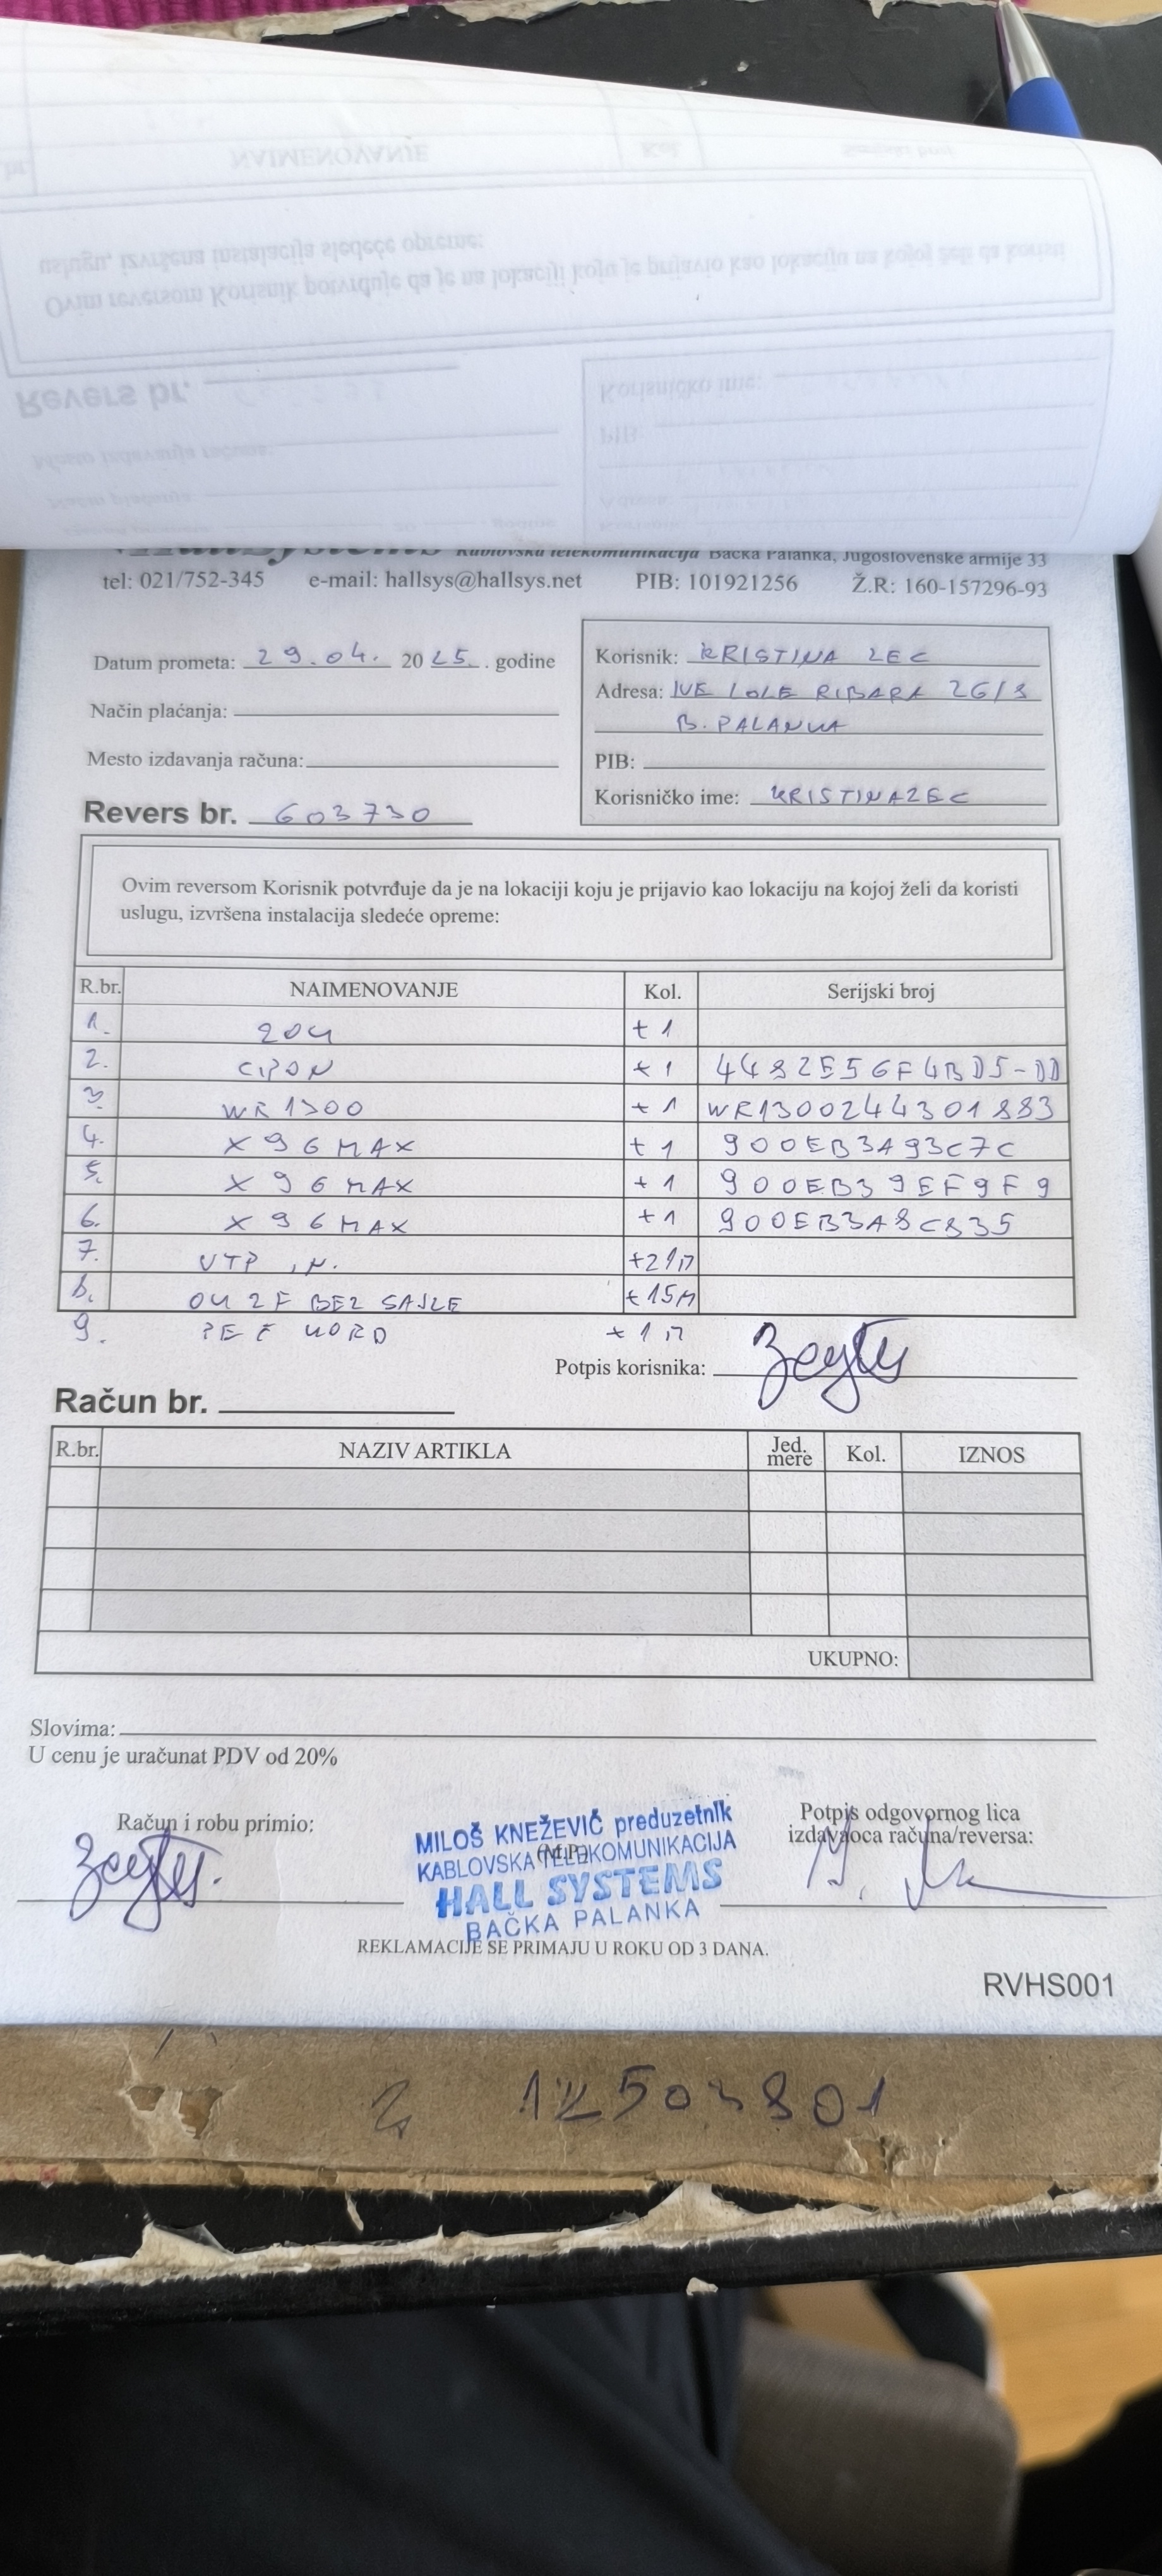 Kablovska telekomunikacija Bačka Palanka, Jugoslovenske armije 33
tel: 021/752-345 e-mail: hallsys@hallsys.net PIB: 101921256 Ž.R: 160-157296-93
Datum prometa: 29.04. 2025. godine
Način plaćanja:
Mesto izdavanja računa:
Revers br. 603730
Korisnik: KRISTINA ZEC
Adresa: IVE LOLE RIBARA 26/3
B. PALANKA
PIB:
Korisničko ime: KRISTINAZEC
Ovim reversom Korisnik potvrđuje da je na lokaciji koju je prijavio kao lokaciju na kojoj želi da koristi
uslugu, izvršena instalacija sledeće opreme:
R.br. NAIMENOVANJE Kol. Serijski broj
1. +1
2. +1
3. WR1300 +1 WR1300244301883
4. X96MAX +1 900EB3A93C7C
5. X96MAX +1 900EB39EF9F9
6. X96MAX +1 900EB3A8C835
7. UTP +21M
8. BEZ SAJLE +15M
9. +1M
Potpis korisnika:
Račun br.
R.br. NAZIV ARTIKLA Jed. mere Kol. IZNOS
UKUPNO:
Slovima:
U cenu je uračunat PDV od 20%
Račun i robu primio:
MILOŠ KNEŽEVIĆ preduzetnik
KABLOVSKA TELEKOMUNIKACIJA
(M.P.)
HALL SYSTEMS
BAČKA PALANKA
Potpis odgovornog lica
izdavaoca računa/reversa:
REKLAMACIJE SE PRIMAJU U ROKU OD 3 DANA.
RVHS001